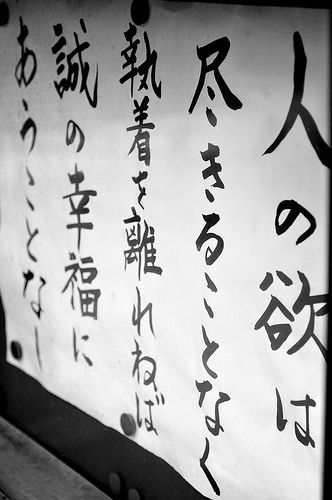 人の欲は
尽きることなく
執着を離れねば
誠の幸福に
あうことなし